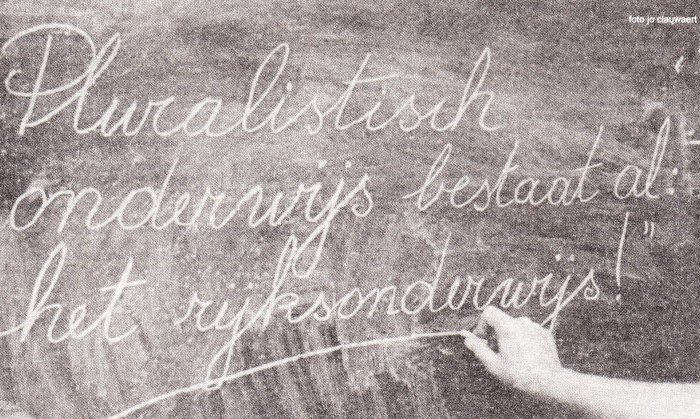 foto jo clauwaert
Pluralistisch
onderwijs bestaat al:
het rijksonderwijs!"